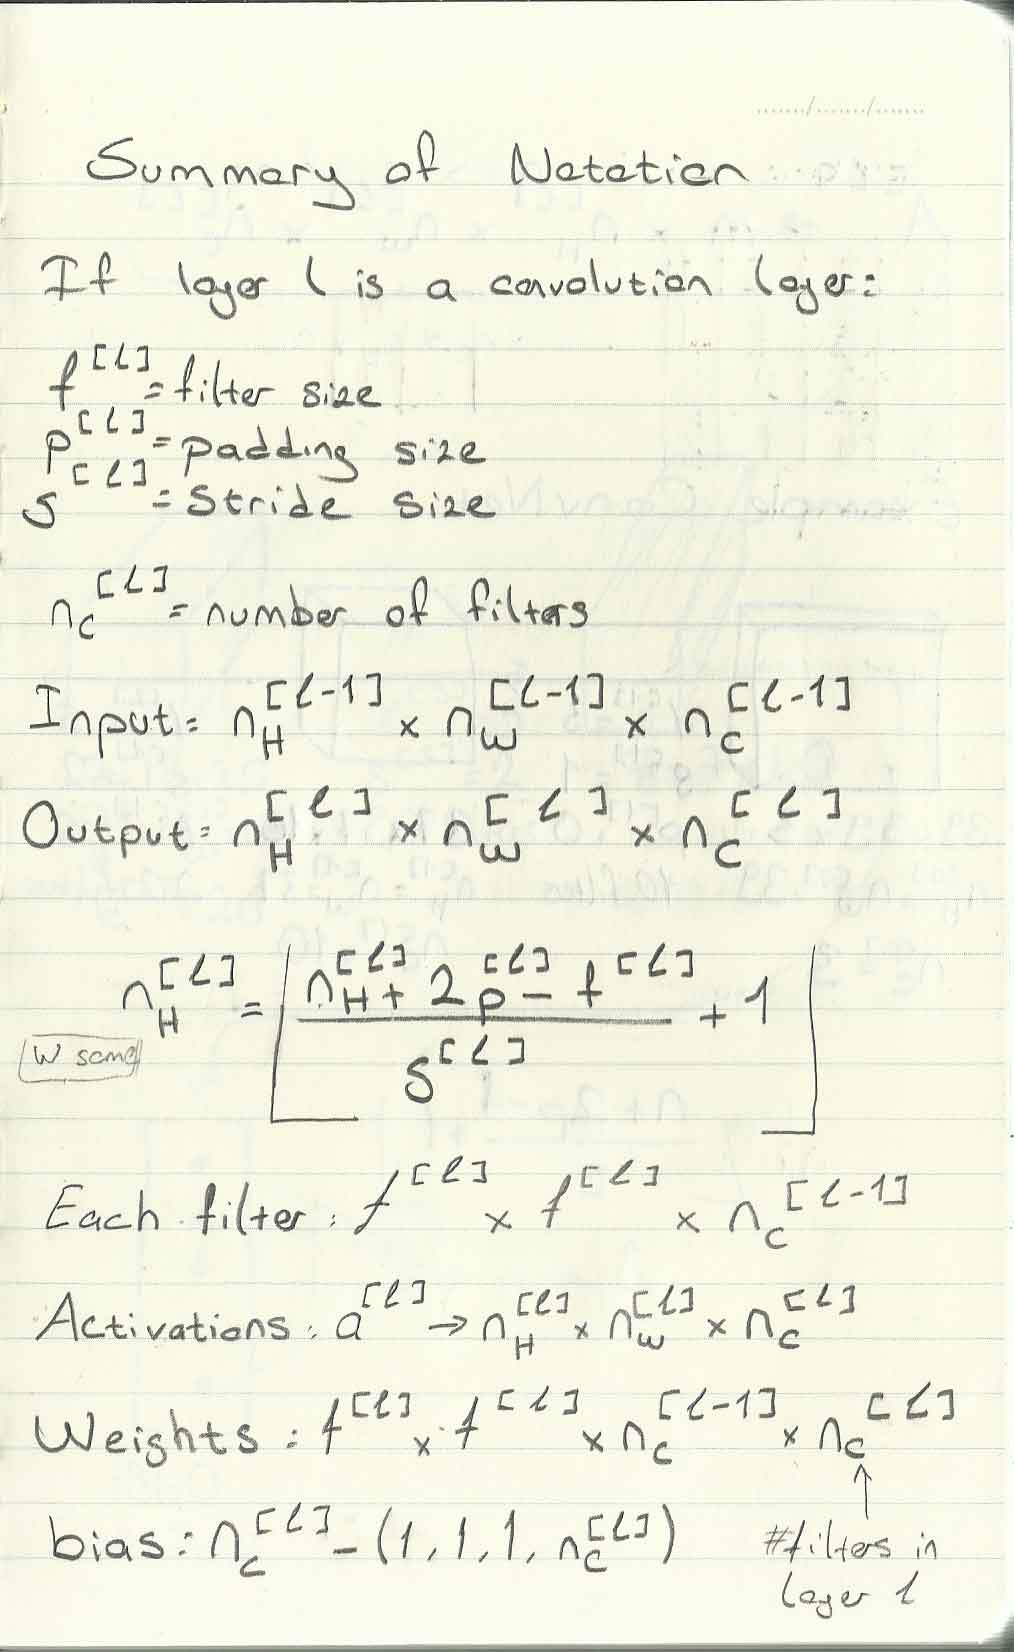 Summary of Notation
If layer l is a convolution layer:
f^[l] = filter size
p^[l] = padding size
s^[l] = stride size
n_c^[l] = number of filters
Input: n_H^[l-1] × n_W^[l-1] × n_c^[l-1]
Output: n_H^[l] × n_W^[l] × n_c^[l]
n_H^[l] = ⌊(n_H^[l] + 2p^[l] - f^[l]) / s^[l] + 1⌋
W same
Each filter: f^[l] × f^[l] × n_c^[l-1]
Activations: a^[l] → n_H^[l] × n_W^[l] × n_c^[l]
Weights: f^[l] × f^[l] × n_c^[l-1] × n_c^[l]
bias: n_c^[l] - (1, 1, 1, n_c^[l])
#filters in
layer l